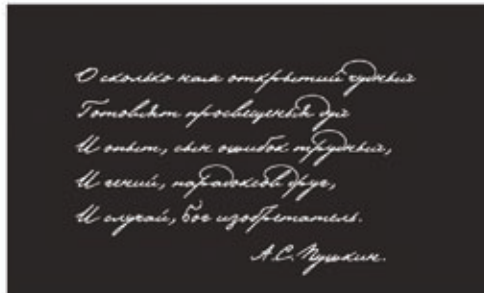 О сколько нам открытий чудных
Готовят просвещенья дух
И опыт, сын ошибок трудных,
И гений, парадоксов друг,
И случай, бог изобретатель.
А.С. Пушкин.